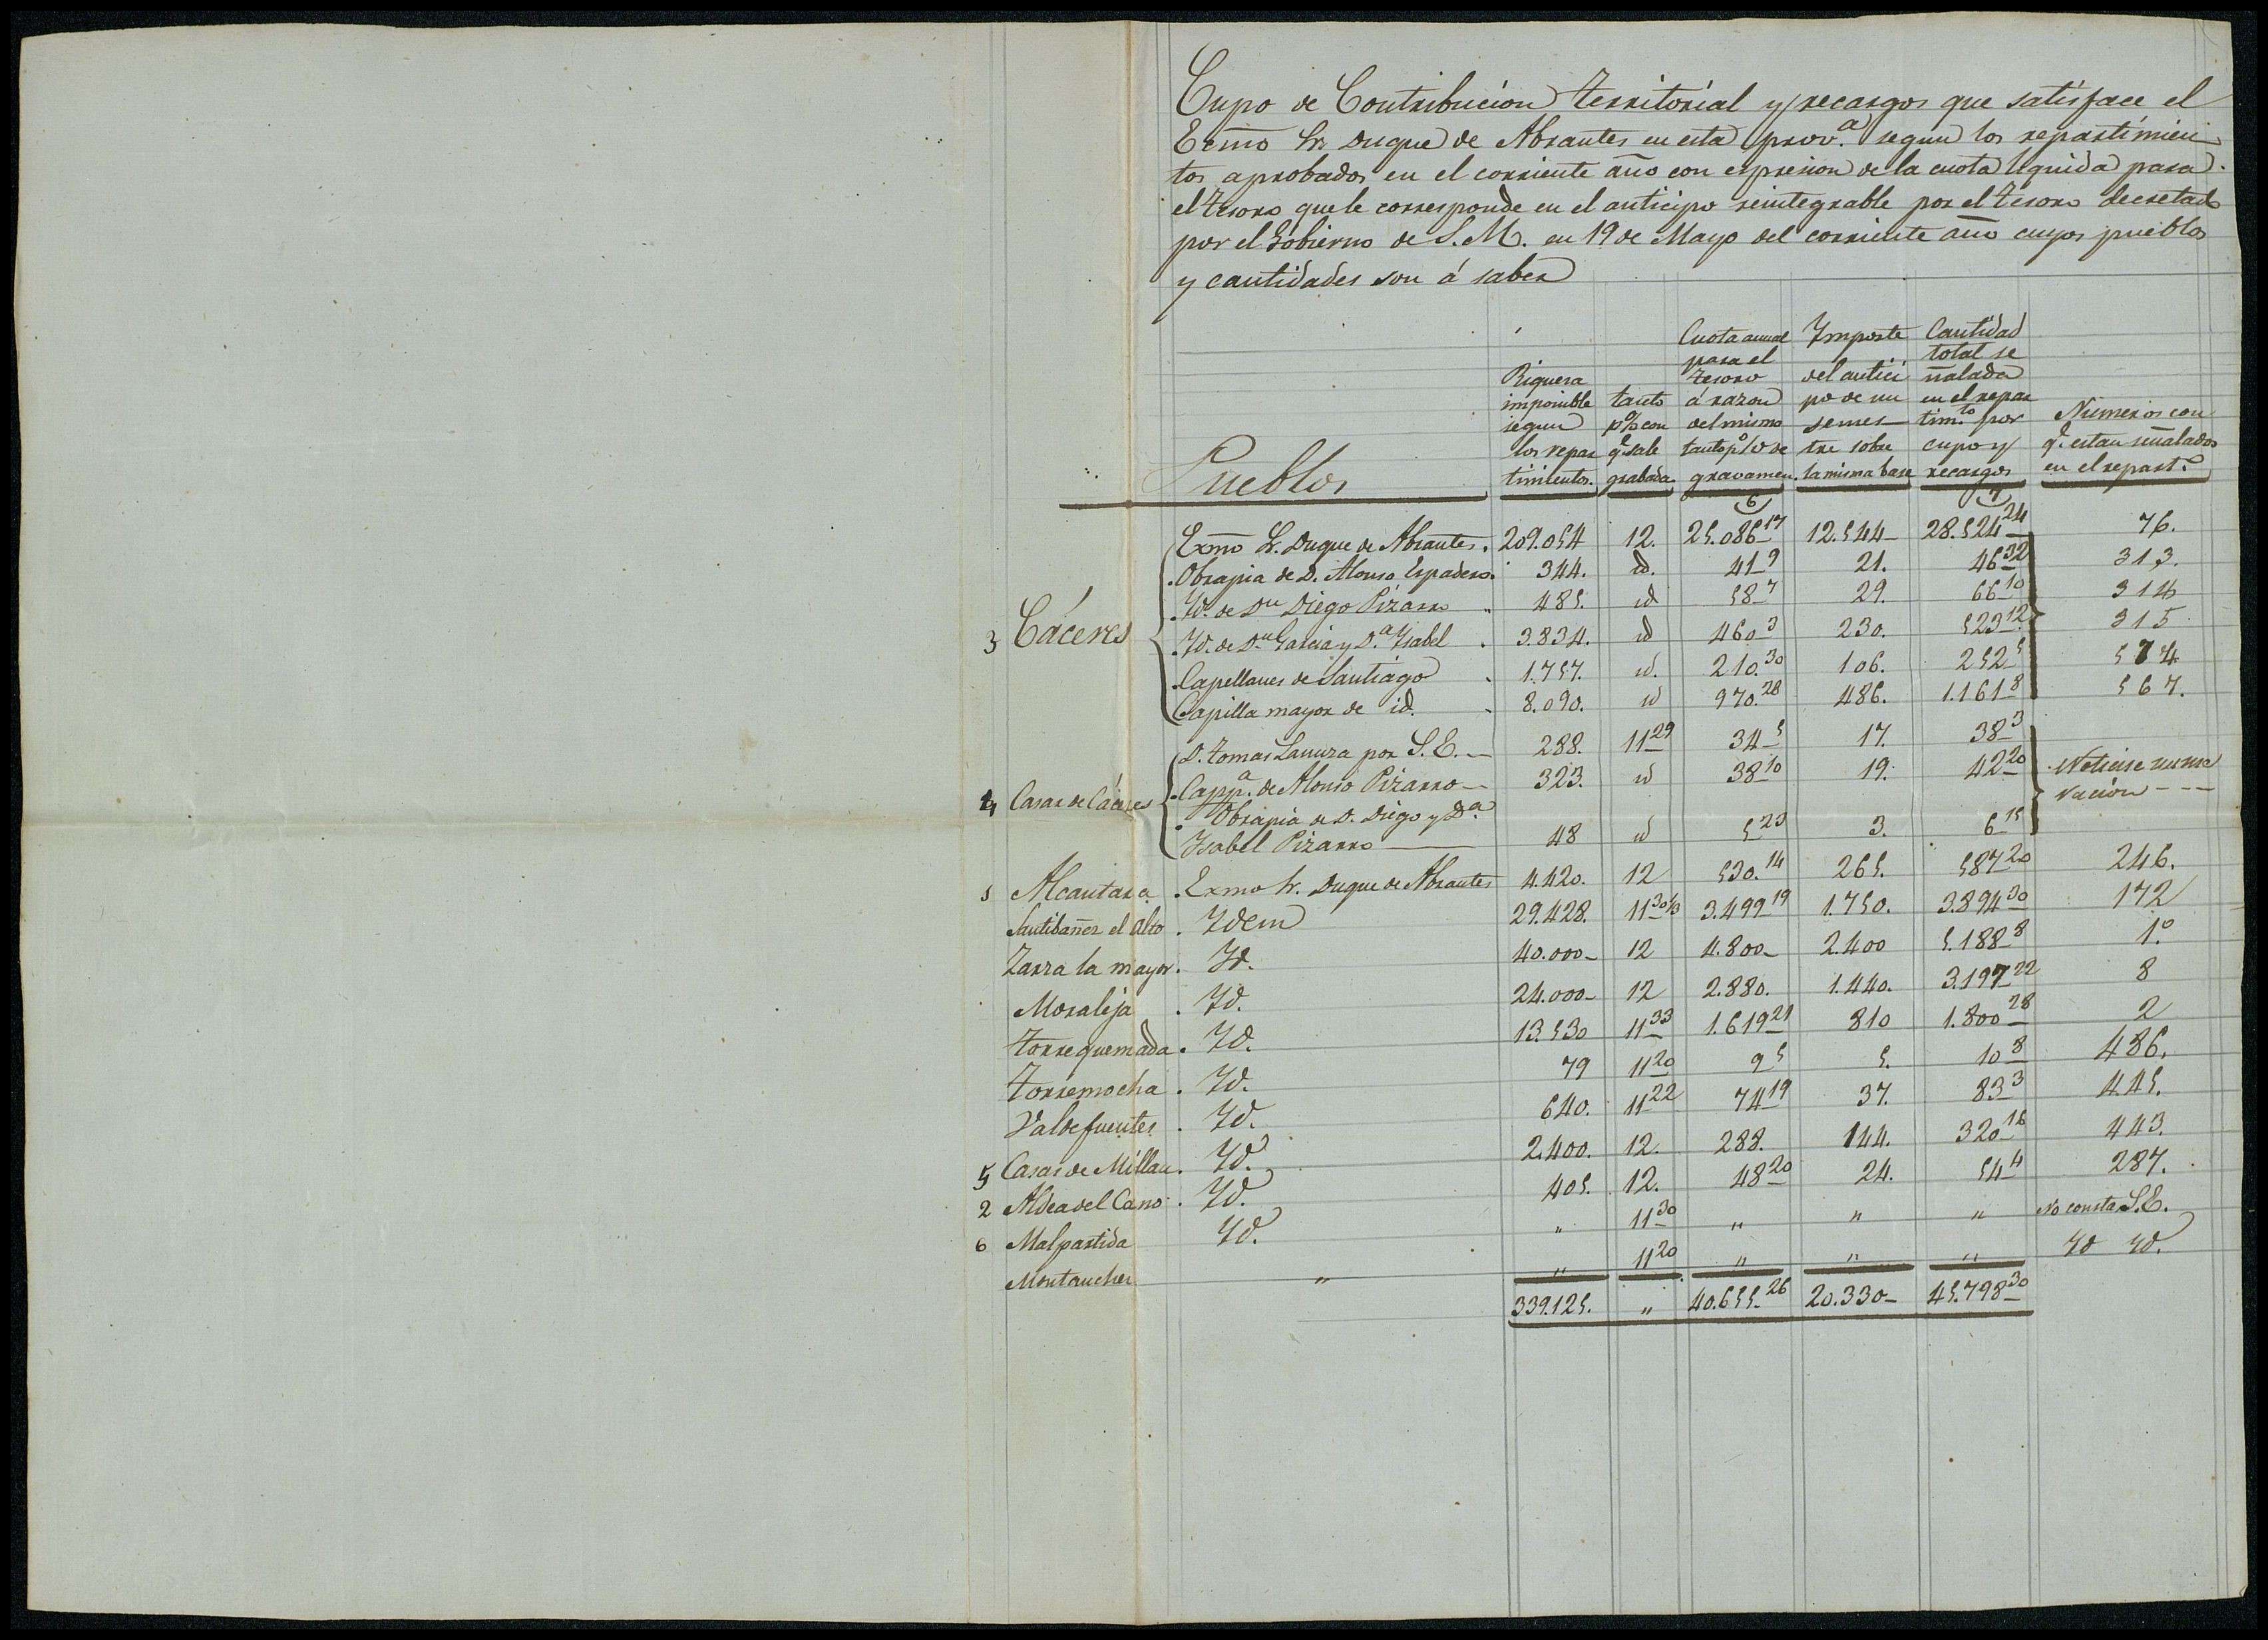 Cupo de Contribucion territorial y recargos que satisface el
Ecmo Sr Duque de Abrantes en esta prov.ª segun los repartimien
tos aprobados en el corriente año con espresion de la cuota liquida para
el tesoro que le corresponde en el anticipo reintegrable por el tesoro decretado
por el Gobierno de S. M. en 19 de Mayo del corriente año cuyos pueblos
y cantidades son á saber
Pueblos
Riquera imponible segun los repar timientos.
tanto p% con q.e sale grabada
Cuota anual para el tesoro á razon del mismo tanto p.o/o de gravamen.
Importe del antici po de un semes tre sobre la misma base
Cantidad total se ñalada en el repar tim.to por cupo y recargos
Numeros con q.e estan señalados en el repart.o
6 7
3 Cáceres
Exmo Sr. Duque de Abrantes. 209.054 12. 25.086 17 12.544 28.524 24 76.
Obrapia de D. Alonso Espadero. 344. id. 41 9 21. 46 32 313.
Yd. de Dn Diego Pizarro 485. id 58 7 29. 66 10 314
Yd. de Dn Garcia y D.ª Ysabel 3.834. id 460 3 230. 523 12 315
Capellanes de Santiago 1.757. id. 210. 30 106. 252 5 574
Capilla mayor de id. 8.090. id 970. 28 486. 1.161 8 567.
4 Casar de Cáceres
D. Tomas Lanuza por S. E. 288. 11 29 34 5 17. 38 3
Capp.ª de Alonso Pizarro 323. id 38 10 19. 42 20 Notiene nume
racion
Obrapia de D. Diego y D.ª
Ysabel Pizarro 48 id 5 23 3. 6 15
1 Alcantara. Exmo Sr. Duque de Abrantes 4.420. 12 530. 14 265. 587 20 246.
Santibañez el alto. Ydem 29.428. 11 30 1/3 3.499 19 1.750. 3.894 30 172
Zarza la mayor. Yd. 40.000 12 4.800 2.400 5.188 8 1.º
Moraleja. Yd. 24.000 12 2.880. 1.440. 3.197 22 8
Torrequemada. Yd. 13.530 11 33 1.619 21 810 1.800 28 2
Torremocha. Yd. 79 11 20 9 5 5. 10 8 486.
Valdefuentes. Yd. 640. 11 22 74 19 37. 83 3 445.
5 Casas de Millan. Yd. 2.400. 12. 288. 144. 320 16 443.
2 Aldea del Cano. Yd. 405. 12. 48 20 24. 54 4 287.
6 Malpartida Yd. " 11 30 " " " No consta S. E.
Montanchez " " 11 20 " " " Yd Yd.
339.125. " 40.655. 26 20.330 45.798 30